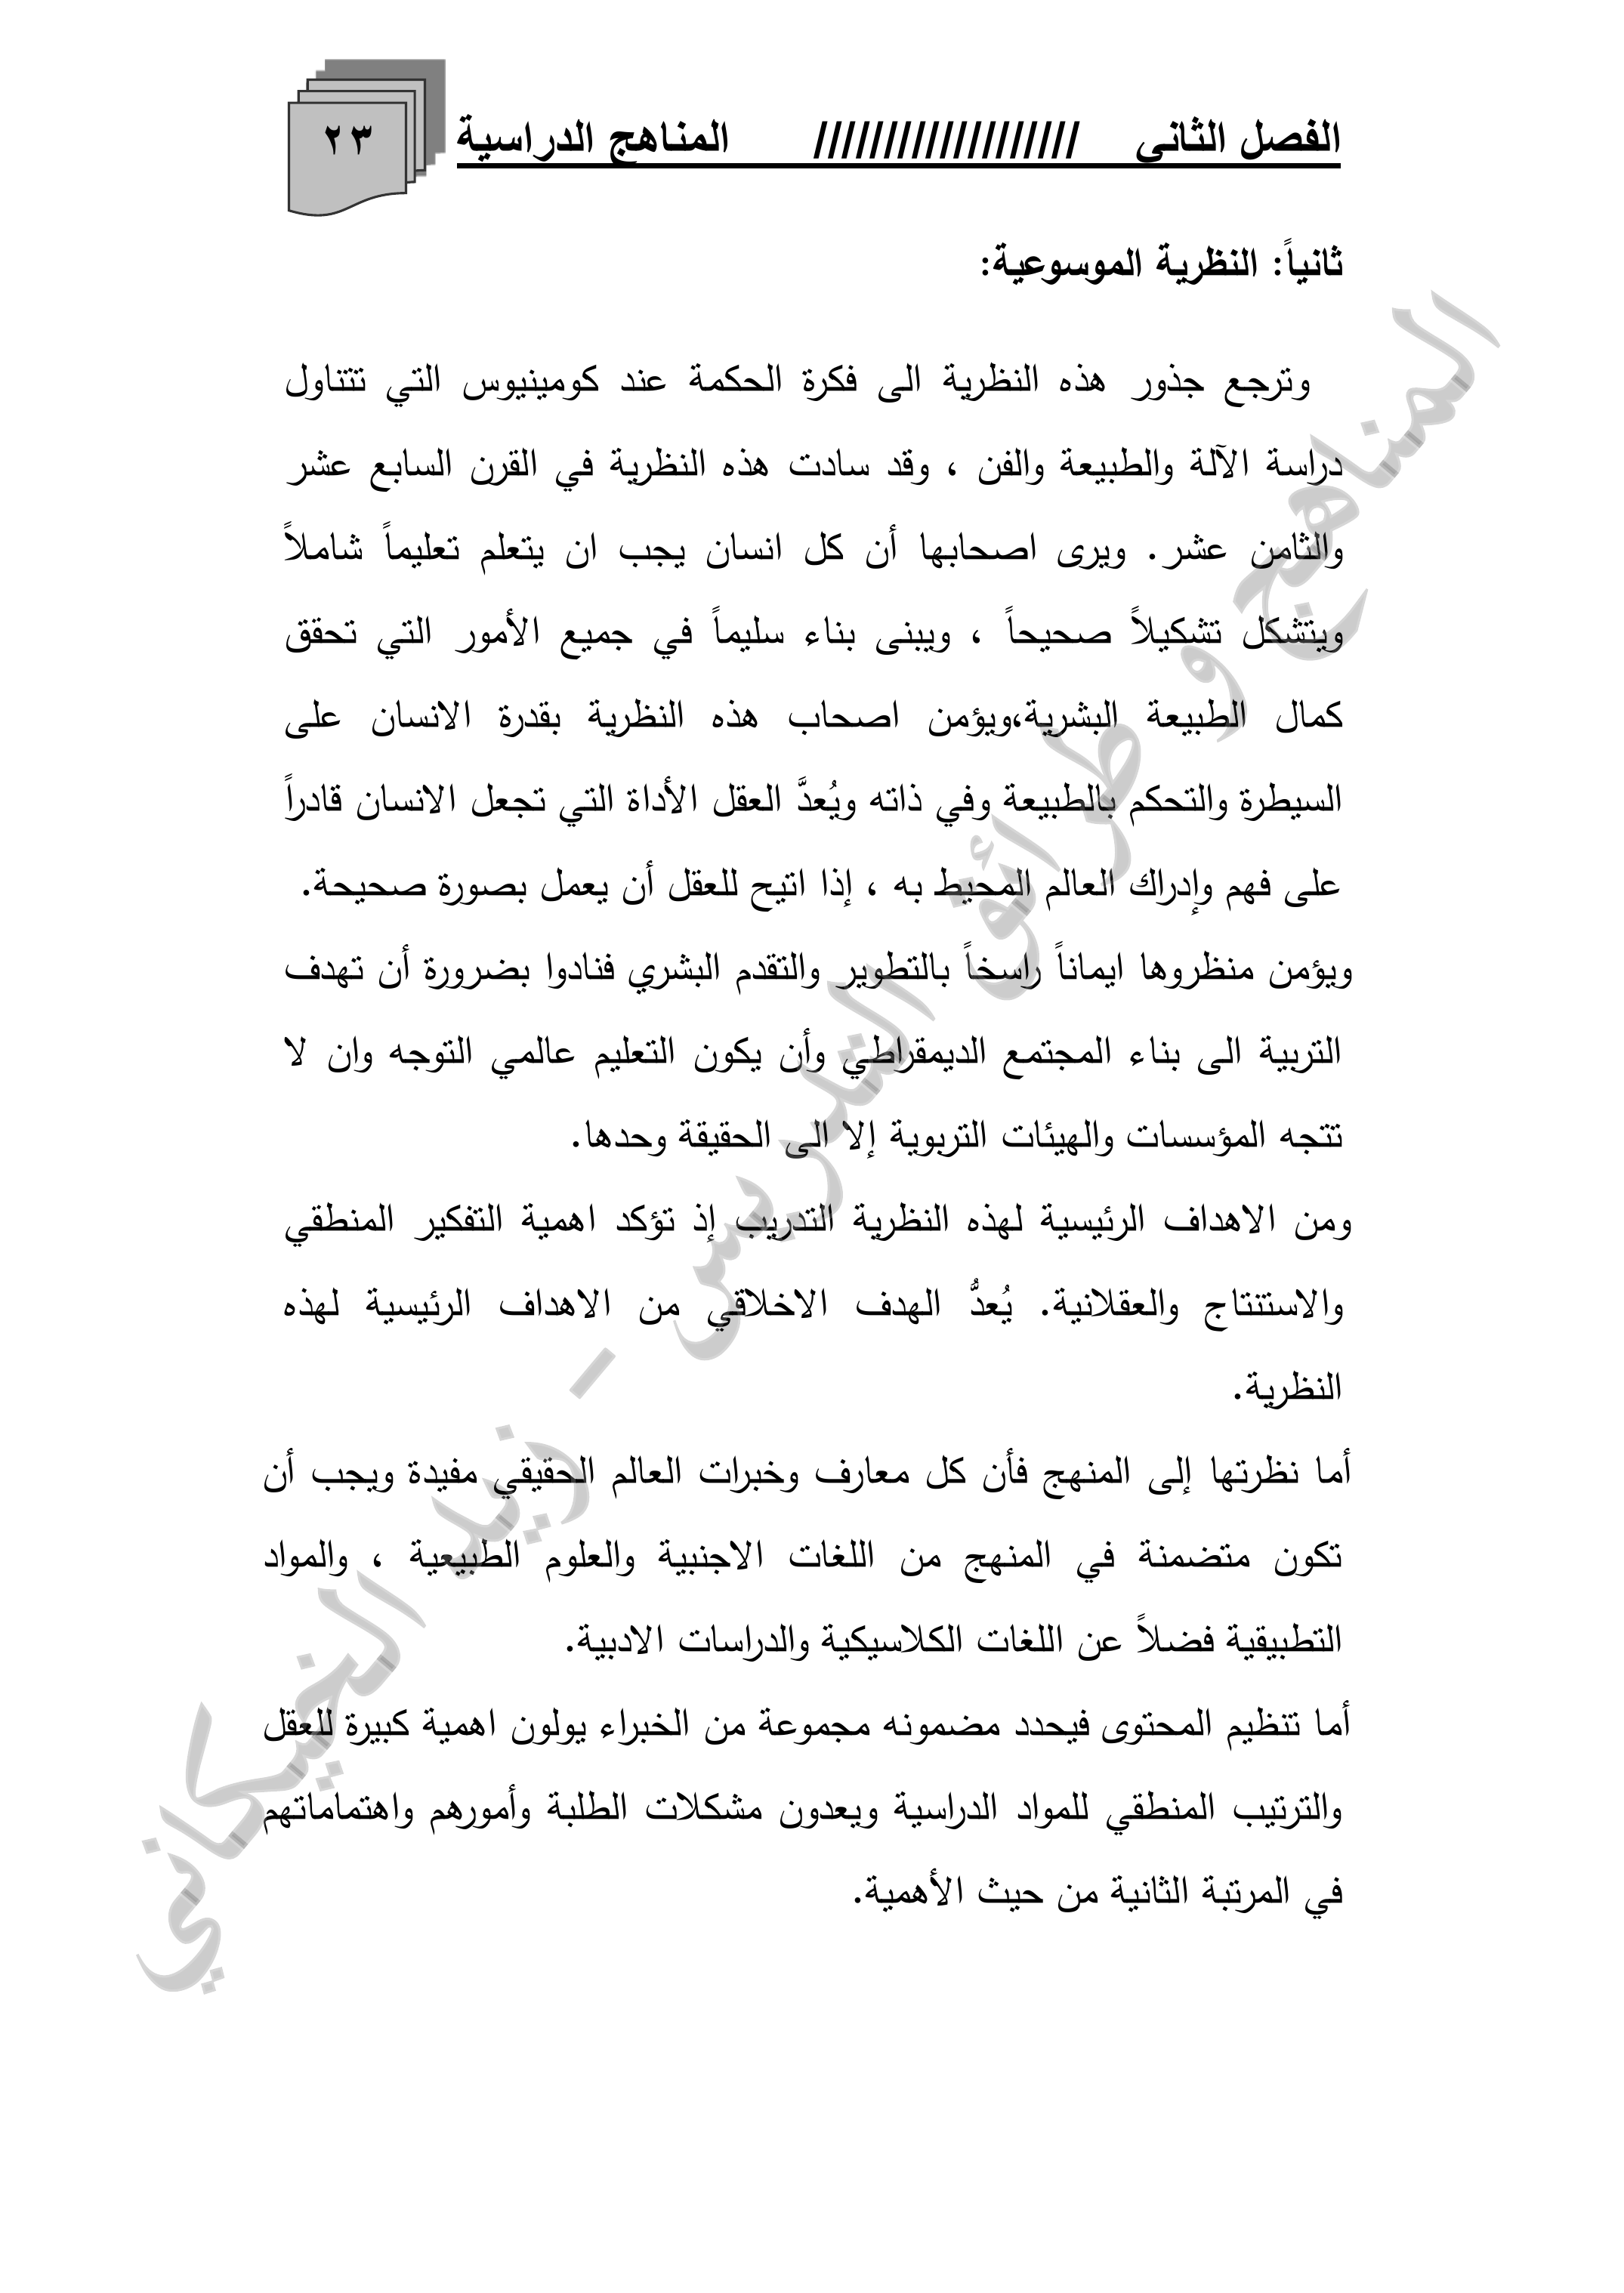 الفصل الثاني /////////////////// المناهج الدراسية ٢٣
ثانياً: النظرية الموسوعية:
وترجع جذور هذه النظرية الى فكرة الحكمة عند كومينيوس التي تتناول
دراسة الآلة والطبيعة والفن ، وقد سادت هذه النظرية في القرن السابع عشر
والثامن عشر. ويرى اصحابها أن كل انسان يجب ان يتعلم تعليماً شاملاً
ويتشكل تشكيلاً صحيحاً ، ويبنى بناء سليماً في جميع الأمور التي تحقق
كمال الطبيعة البشرية،ويؤمن اصحاب هذه النظرية بقدرة الانسان على
السيطرة والتحكم بالطبيعة وفي ذاته ويُعدَّ العقل الأداة التي تجعل الانسان قادراً
على فهم وإدراك العالم المحيط به ، إذا اتيح للعقل أن يعمل بصورة صحيحة.
ويؤمن منظروها ايماناً راسخاً بالتطوير والتقدم البشري فنادوا بضرورة أن تهدف
التربية الى بناء المجتمع الديمقراطي وأن يكون التعليم عالمي التوجه وان لا
تتجه المؤسسات والهيئات التربوية إلا الى الحقيقة وحدها.
ومن الاهداف الرئيسية لهذه النظرية التدريب إذ تؤكد اهمية التفكير المنطقي
والاستنتاج والعقلانية. يُعدُّ الهدف الاخلاقي من الاهداف الرئيسية لهذه
النظرية.
أما نظرتها إلى المنهج فأن كل معارف وخبرات العالم الحقيقي مفيدة ويجب أن
تكون متضمنة في المنهج من اللغات الاجنبية والعلوم الطبيعية ، والمواد
التطبيقية فضلاً عن اللغات الكلاسيكية والدراسات الادبية.
أما تنظيم المحتوى فيحدد مضمونه مجموعة من الخبراء يولون اهمية كبيرة للعقل
والترتيب المنطقي للمواد الدراسية ويعدون مشكلات الطلبة وأمورهم واهتماماتهم
في المرتبة الثانية من حيث الأهمية.
المناهج و طرائق التدريس - زيد الخيكاني